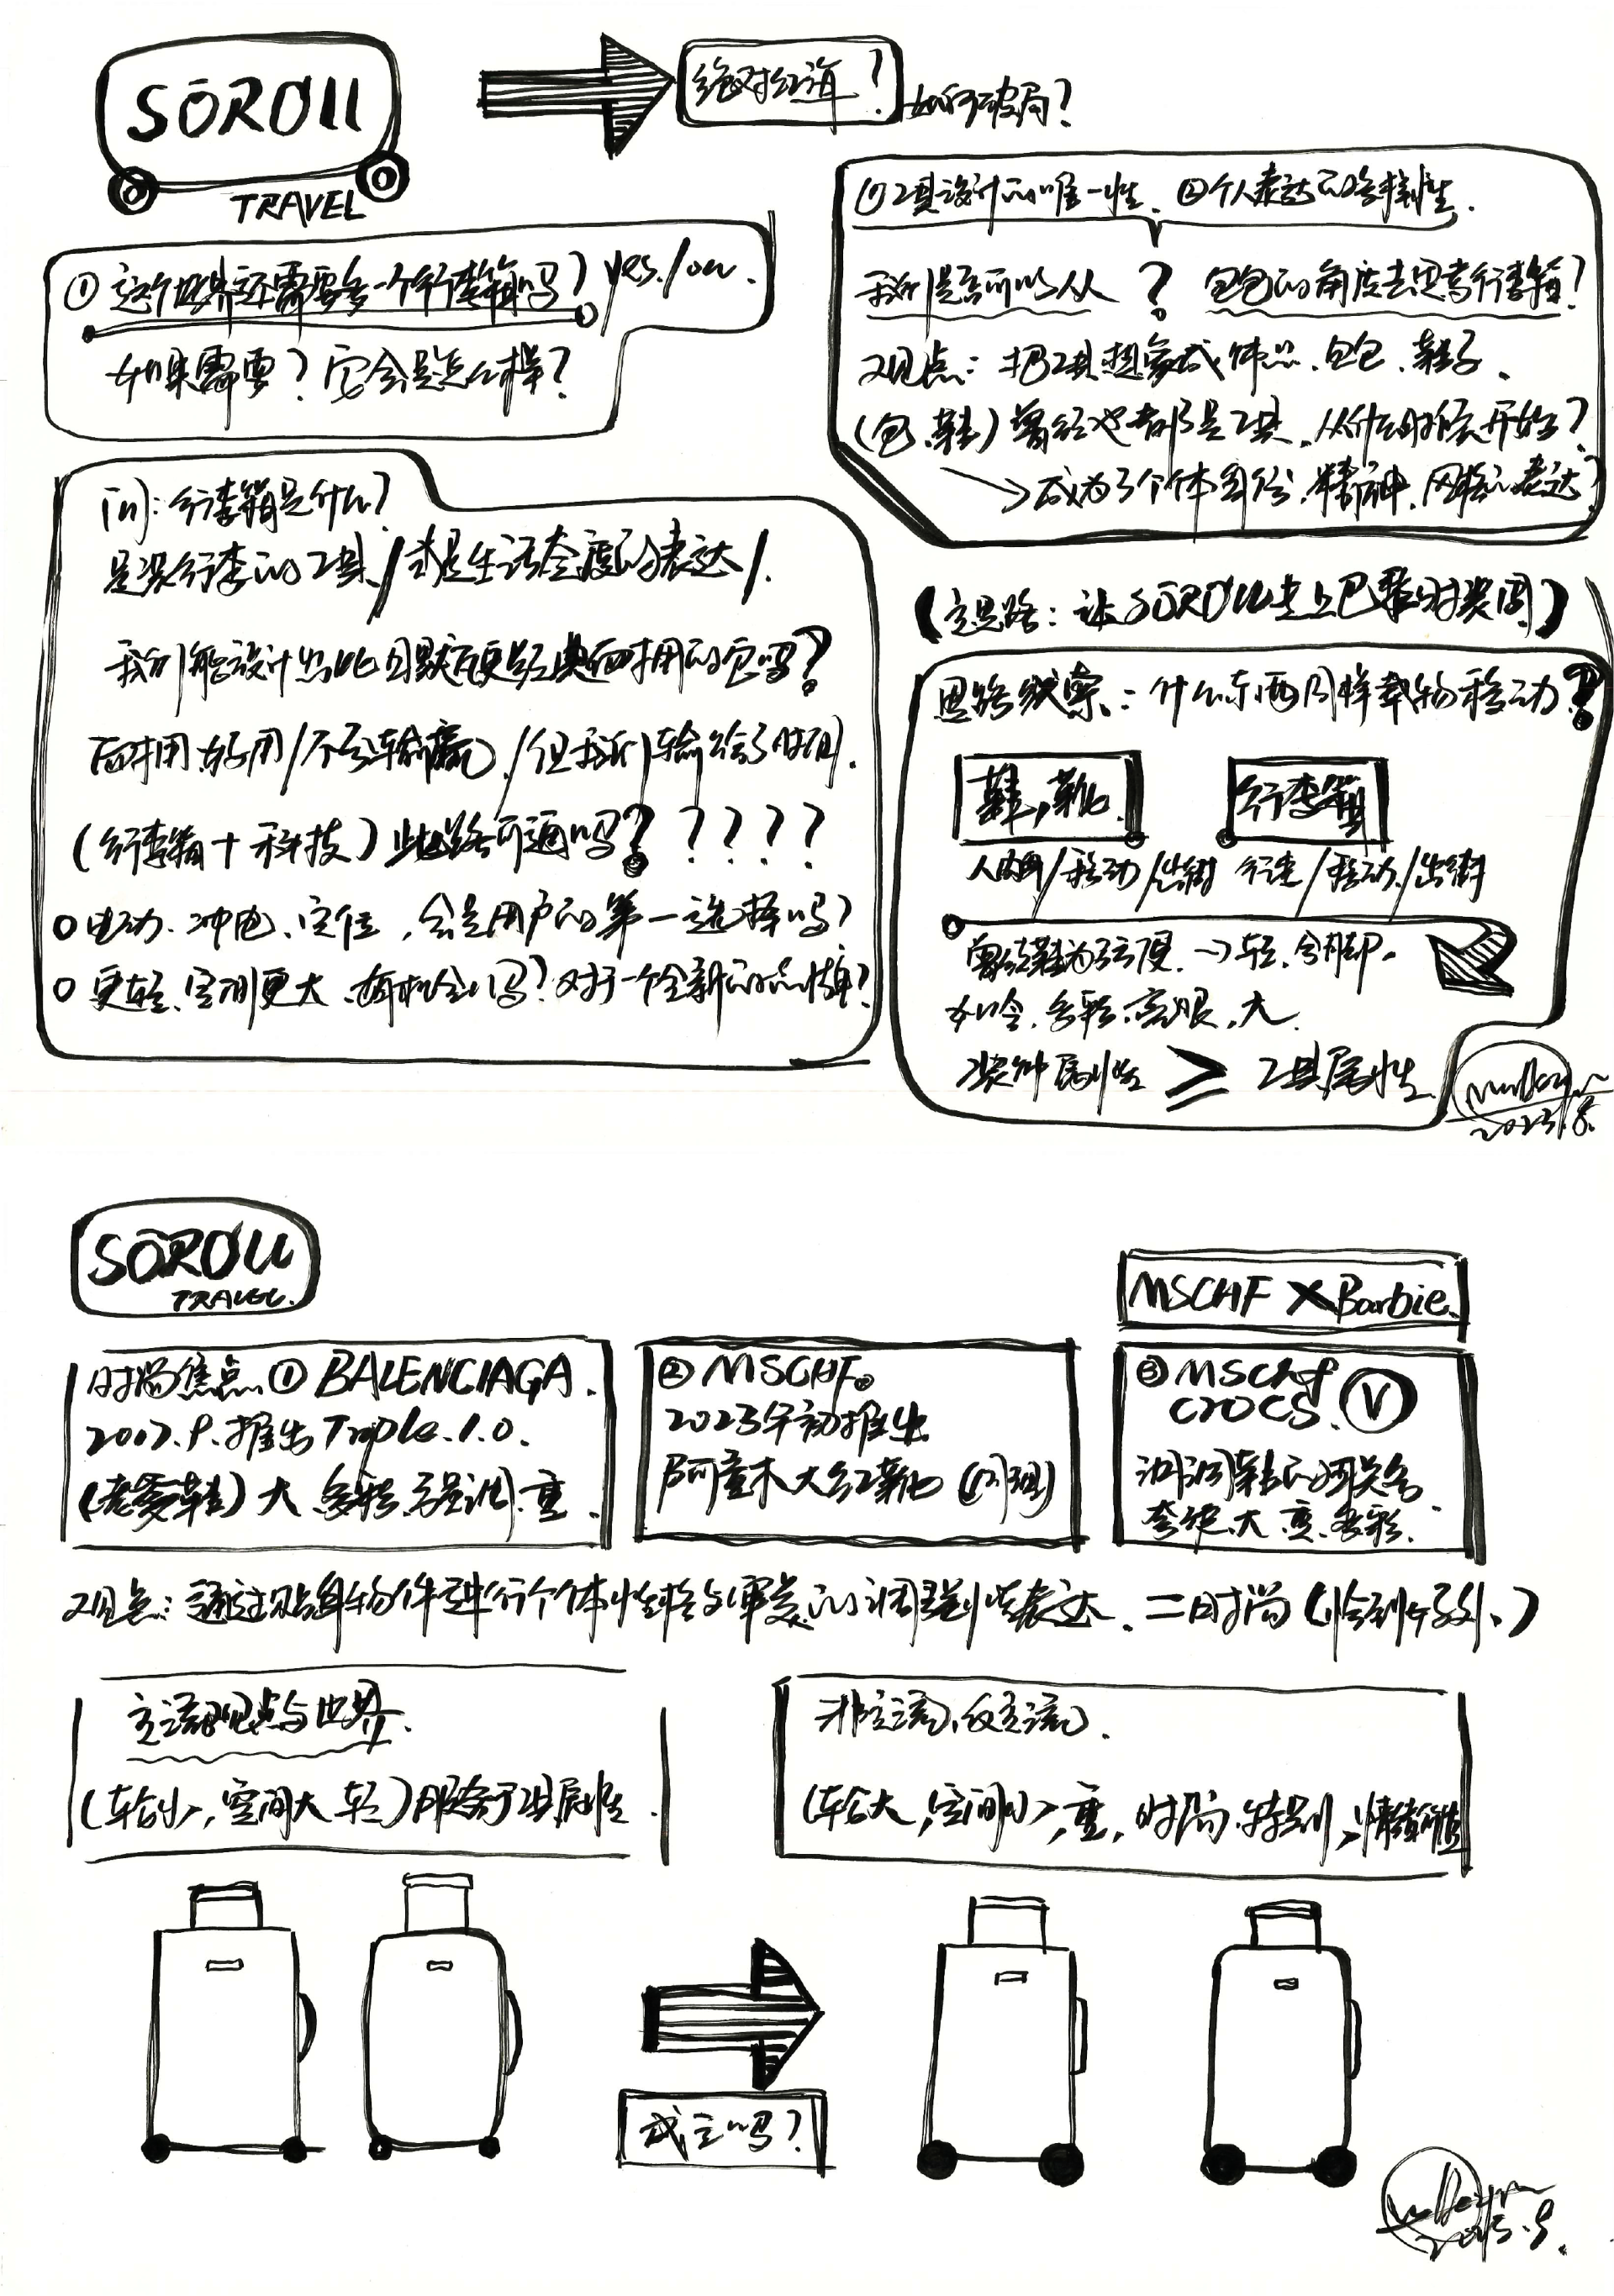 SŌROll
TRAVEL
绝对红海！
如何破局？
① 这个世界还需要多一个行李箱吗？yes./on.
如果需要？它会是怎么样？
问：行李箱是什么？
是装行李的工具/或是生活态度的表达/.
我们能设计出比日默瓦更经典而耐用的包吗？
而耐用.好用/不分输赢./但我们输给了时间.
(行李箱+科技)此路可通吗？？？？？
电动.冲电、定位，会是用户的第一选择吗？
更轻、空间更大.有机会吗？对于一个全新的品牌？
①工具设计的唯一性、②个人表达的多样性.
我们是否可以从？包包的角度去思考行李箱？
观点：把工具想象成饰品.包包.鞋子.
(包.鞋)曾经也都是工具.从什么时候开始？
→成为了个体身份.精神.风格的表达
(定思路：让SŌROll走上巴黎时装周)
思路线索：什么东西同样载物移动？
鞋,靴
行李箱
人肉身/移动/出街 行走/移动/出街
曾经鞋为了方便.→轻.合脚.
如今.多彩.亮眼,大.
装饰属性≥工具属性
2023.8.
SŌROll
TRAVEL.
MSCHF×Barbie.
时尚焦点①BALENCIAGA.
2017.9.推出Triple.1.0.
(老爹鞋)大.多彩.重.
②MSCHF。
2023年初推出
阿童木大红靴
③MSCHF
CROCS. V
洞洞鞋的联名.
夸张.大.重.多彩.
观点：通过贴身物件进行个体性格与审美的调理性表达.=时尚(恰到好处.)
主流观点与世界.
(轮小,空间大 轻)服务于工具属性.
非主流,反主流.
(轮大,空间小,重,时尚.特别,情绪价值
成立吗？